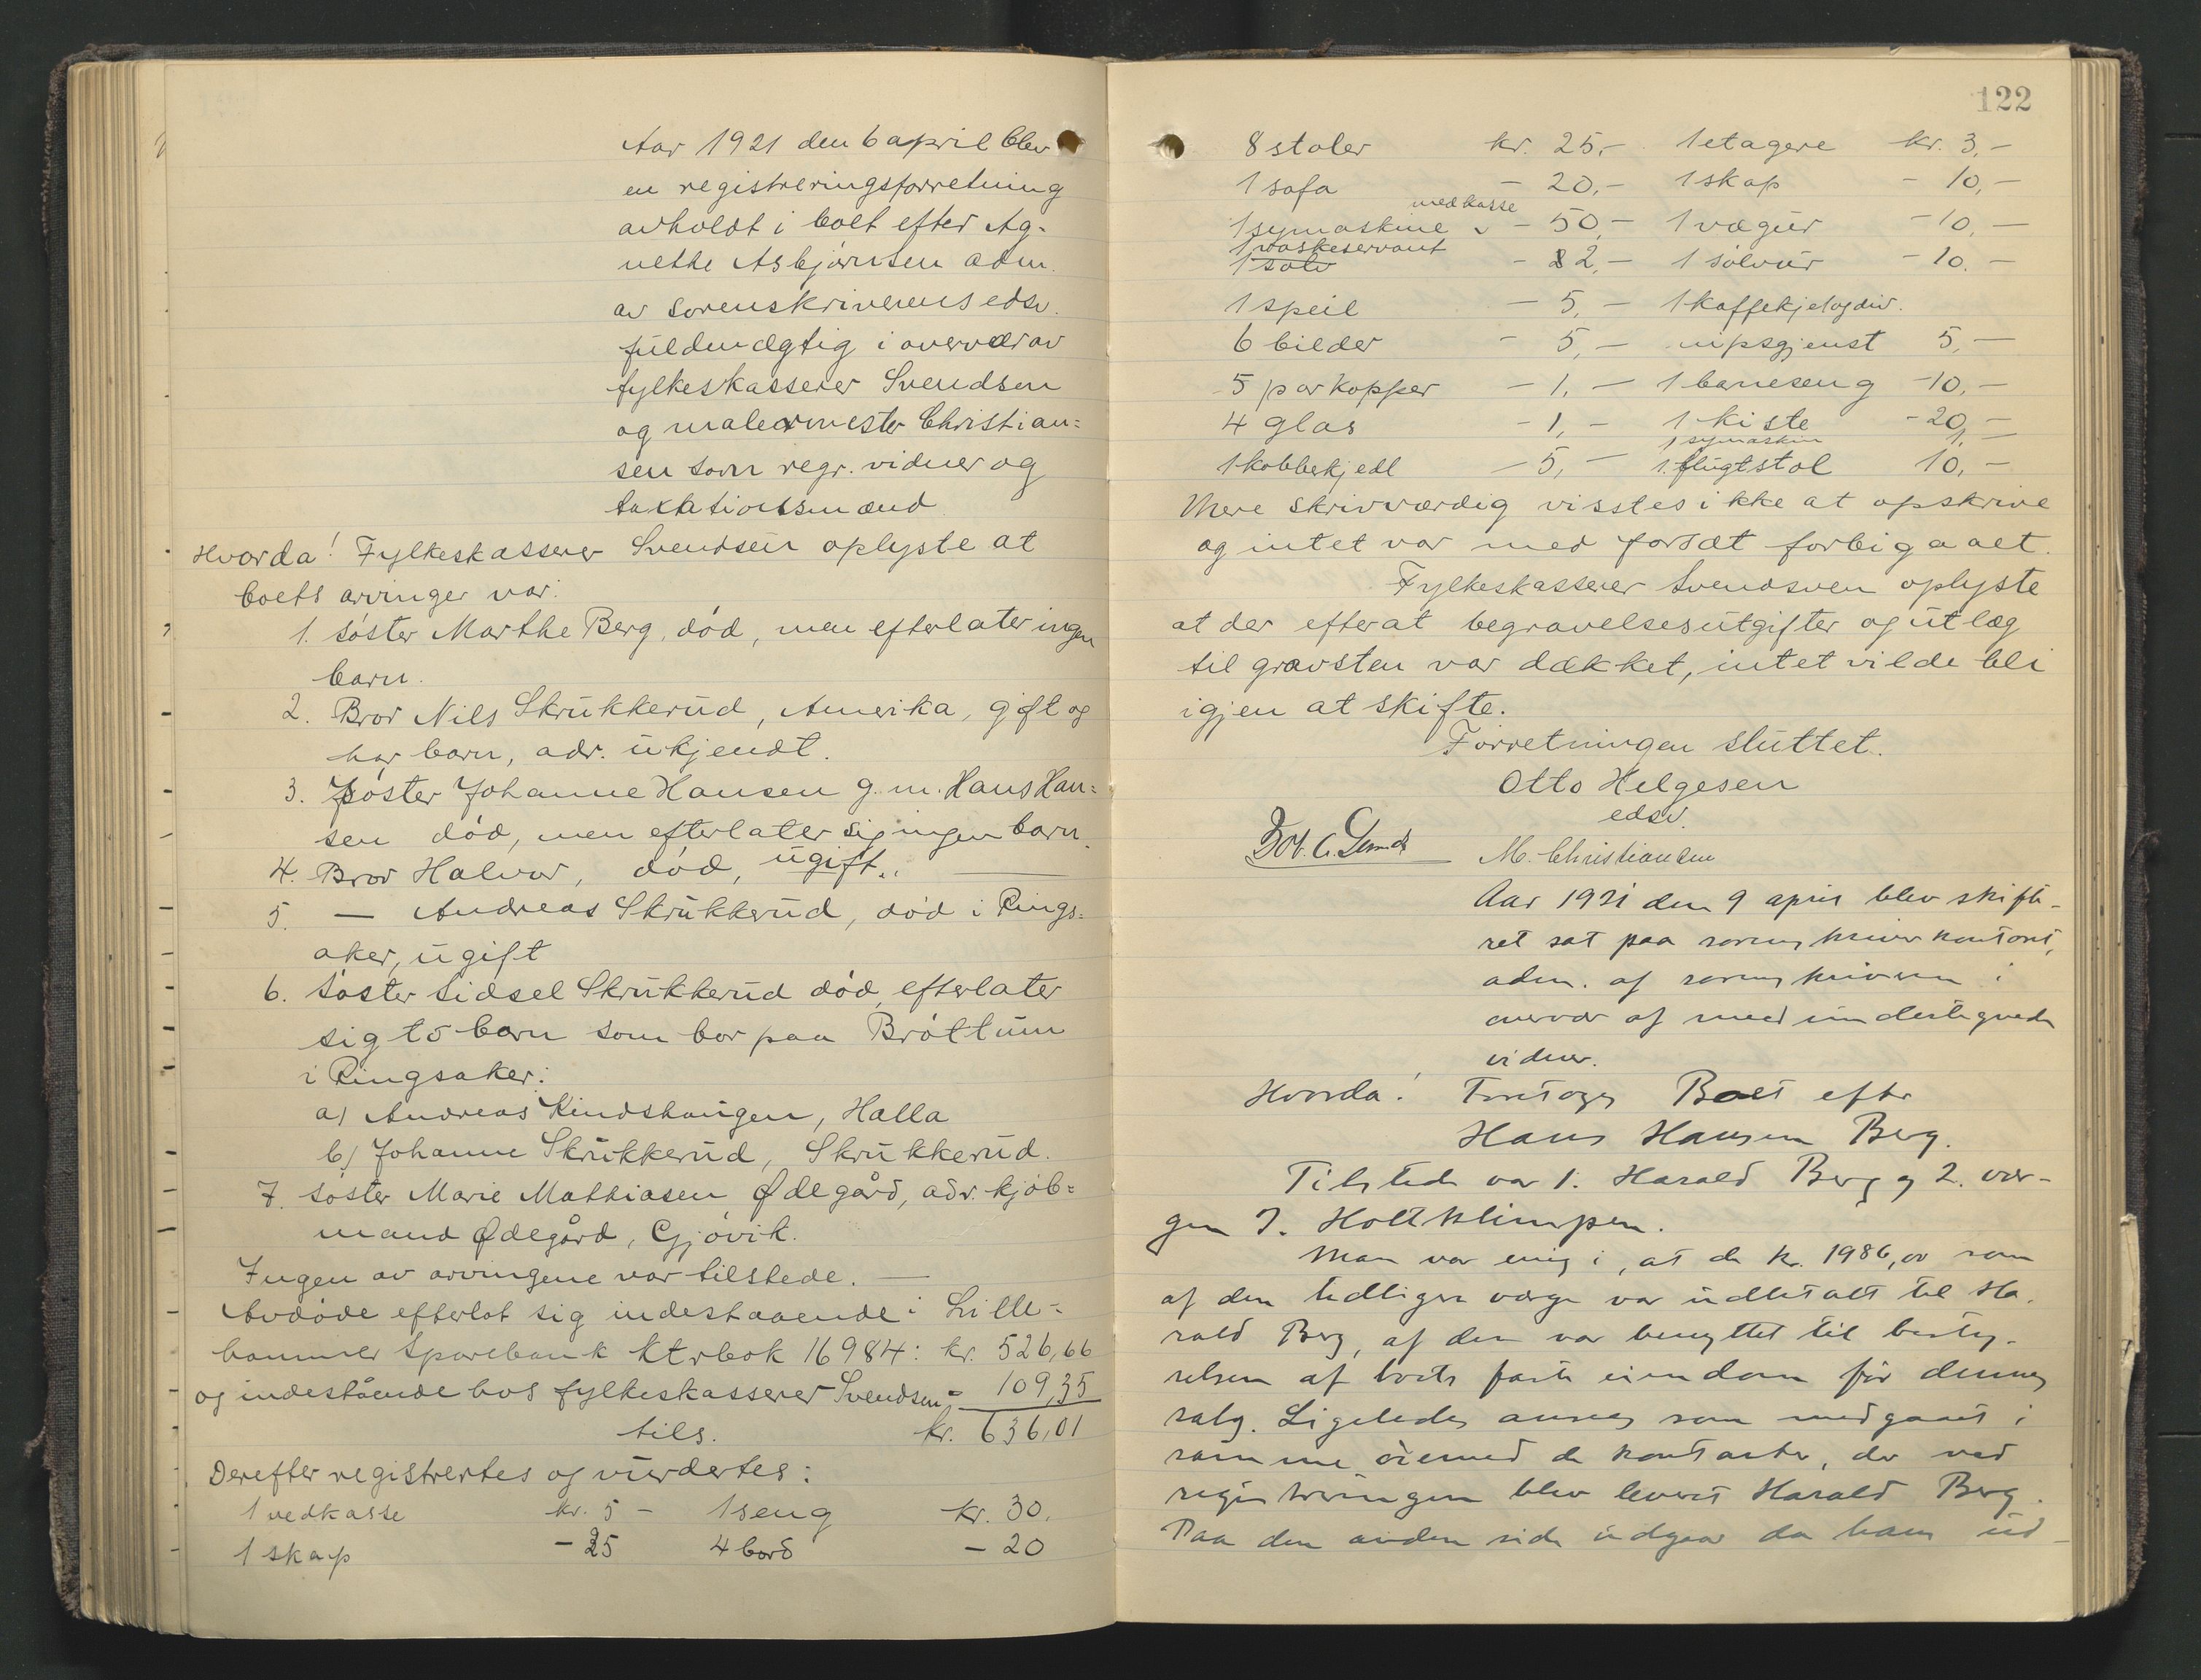 Aar 1921 den 6 april blev
en registreringsforretning
avholdt i boet efter Ag-
nethe Asbjørnsen adm.
av sorenskriverens edsv.
fuldmægtig i overvær av
fylkeskasserer Svendsen
og malermester Christian=
sen som regr. vidner og
taxationsmænd
Hvorda! Fylkeskasserer Svendsen oplyste at
boets arvinger var:
1. Søster Marthe Berg, død, men efterlater ingen
barn.
2. Bror Nils Skrukkerud, Amerika, gift og
har barn, adr. ukjendt.
3. Søster Johanne Hansen g. m. Hans Han=
sen død, men efterlater sig ingen barn.
4. Bror Halvor, død, ugift.
5. — Andreas Skrukkerud, død i Rings=
aker, ugift
6. Søster Sidsel Skrukkerud død, efterlater
sig to barn som bor paa Brøttum
i Ringsaker:
a) Andreas Kindshaugen, Halla
b) Johanne Skrukkerud, Skrukkerud.
7. Søster Marie Mathiasen Ødegård, adr. kjøb=
mand Ødegård, Gjøvik.
Ingen av arvingene var tilstede. —
Avdøde efterlot sig indestaaende i Lille-
hammer Sparebank ktrbok 16984: kr. 526,66
og indestående hos fylkeskasserer Svendsen - 109,35
tils. kr. 636,01
Derefter registrertes og vurdertes:
1 vedkasse kr. 5 - 1 seng kr. 30.
1 skap - 25 4 bord - 20
122
8 stoler kr. 25,- 1 etagere kr. 3,-
1 sofa - 20,- 1 skap - 10,-
1 symaskine med kasse - 50,- 1 vægur - 10,-
1 vaskeservant
1 sølv - 2,- 1 sølvur - 10.-
1 speil - 5,- 1 kaffekjel og div.
6 bilder - 5,- nipsgjenst 5,-
5 par kopper - 1,- 1 barneseng - 10,-
4 glas - 1,- 1 kiste - 20,-
1 symaskin 1,-
1 kobbekjedl - 5,- 1 flugtstol 10,-
Mere skrivværdig visstes ikke at opskrive
og intet var med forsæt forbigaaet.
Fylkeskasserer Svendsen oplyste
at der efterat begravelsesutgifter og utlæg
til gravsten var dækket, intet vilde bli
igjen at skifte.
Forretningen sluttet.
Otto Helgesen
edsv.
M. Christiansen
Aar 1921 den 9 april blev skifte-
ret sat paa sorenskriverkontoret,
adm. af sorenskriveren i
overvær af medundertegnede
vidner.
Hvorda! Foretoges Boet efter
Hans Hansen Berg.
Tilstede var 1. Harald Berg og 2. vær-
gen J. Holtklimpen.
Man var enig i, at de kr. 1986,00 som
af den tidligere værge var udbetalt til Ha-
rald Berg, af den var benyttet til besty-
relsen af boets faste eiendom før dennes
salg. Ligeledes ansees som medgaaet i
samme øiemed de kontanter, der ved
registreringen blev leveret Harald Berg.
Paa den anden side udgaar da hans ud-